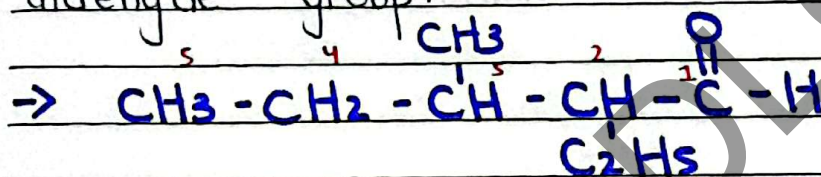 aldehyde group.
CH3
O
5 4 3 2 1
-> CH3 - CH2 - CH - CH - C - H
C2H5